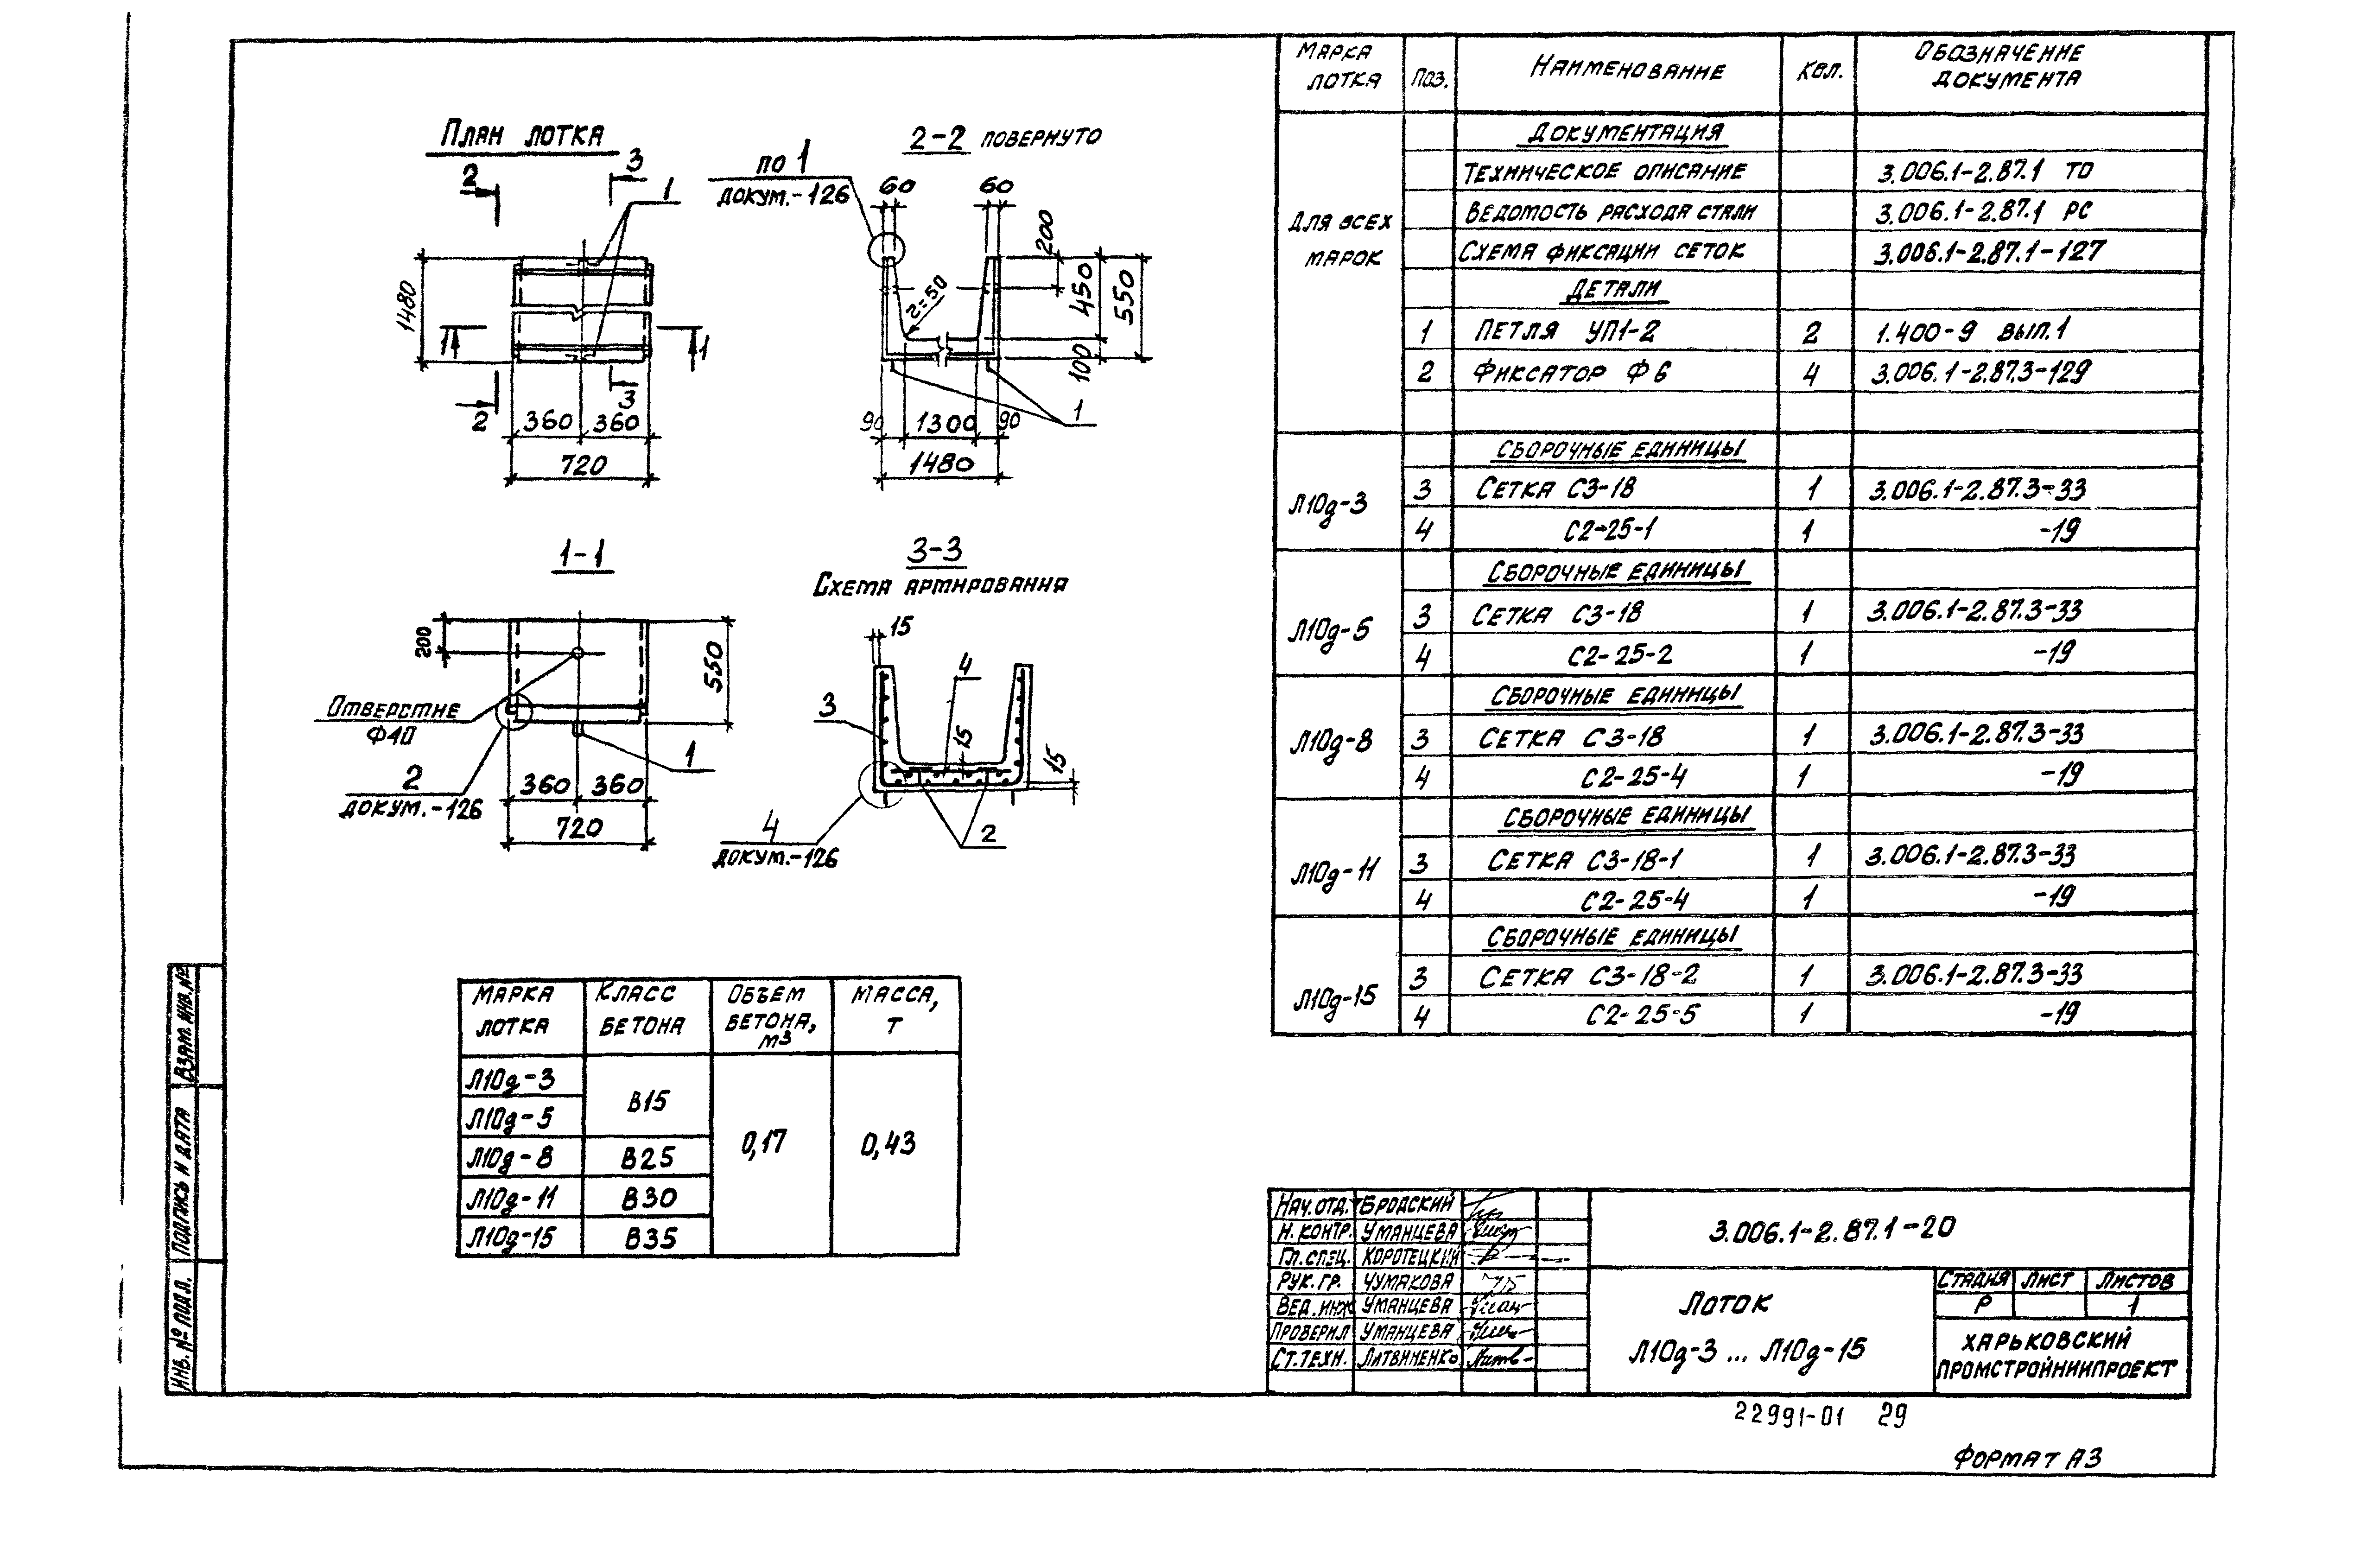 План лотка
2
3
1
1480
1
1
2
3
360 360
720
2-2 повернуто
по 1
докум.-126
60
60
200
450
550
100
r=50
1
90
1300
90
1480
1-1
200
550
Отверстие
Ф40
2
докум.-126
1
360 360
720
3-3
Схема армирования
15
3
4
15
15
4
докум.-126
2
Марка лотка | Класс бетона | Объем бетона, м3 | Масса, т
Л10д-3 | В15 | 0,17 | 0,43
Л10д-5
Л10д-8 | В25
Л10д-11 | В30
Л10д-15 | В35
Марка лотка | Поз. | Наименование | Кол. | Обозначение документа
Для всех марок
Документация
Техническое описание | 3.006.1-2.87.1 ТО
Ведомость расхода стали | 3.006.1-2.87.1 РС
Схема фиксации сеток | 3.006.1-2.87.1-127
Детали
1 | Петля УП1-2 | 2 | 1.400-9 вып.1
2 | Фиксатор Ф6 | 4 | 3.006.1-2.87.3-129
Л10д-3
Сборочные единицы
3 | Сетка С3-18 | 1 | 3.006.1-2.87.3-33
4 | С2-25-1 | 1 | -19
Л10д-5
Сборочные единицы
3 | Сетка С3-18 | 1 | 3.006.1-2.87.3-33
4 | С2-25-2 | 1 | -19
Л10д-8
Сборочные единицы
3 | Сетка С3-18 | 1 | 3.006.1-2.87.3-33
4 | С2-25-4 | 1 | -19
Л10д-11
Сборочные единицы
3 | Сетка С3-18-1 | 1 | 3.006.1-2.87.3-33
4 | С2-25-4 | 1 | -19
Л10д-15
Сборочные единицы
3 | Сетка С3-18-2 | 1 | 3.006.1-2.87.3-33
4 | С2-25-5 | 1 | -19
Нач.отд. Бродский
Н.контр. Уманцева
Гл.спец. Коротецкий
Рук.гр. Чумакова
Вед.инж Уманцева
Проверил Уманцева
Ст.техн. Литвиненко
3.006.1-2.87.1-20
Лоток
Л10д-3 ... Л10д-15
Стадия Лист Листов
Р 1
Харьковский
Промстройниипроект
Взам. инв.№
Подпись и дата
Инв.№ подл.
22991-01 29
Формат А3